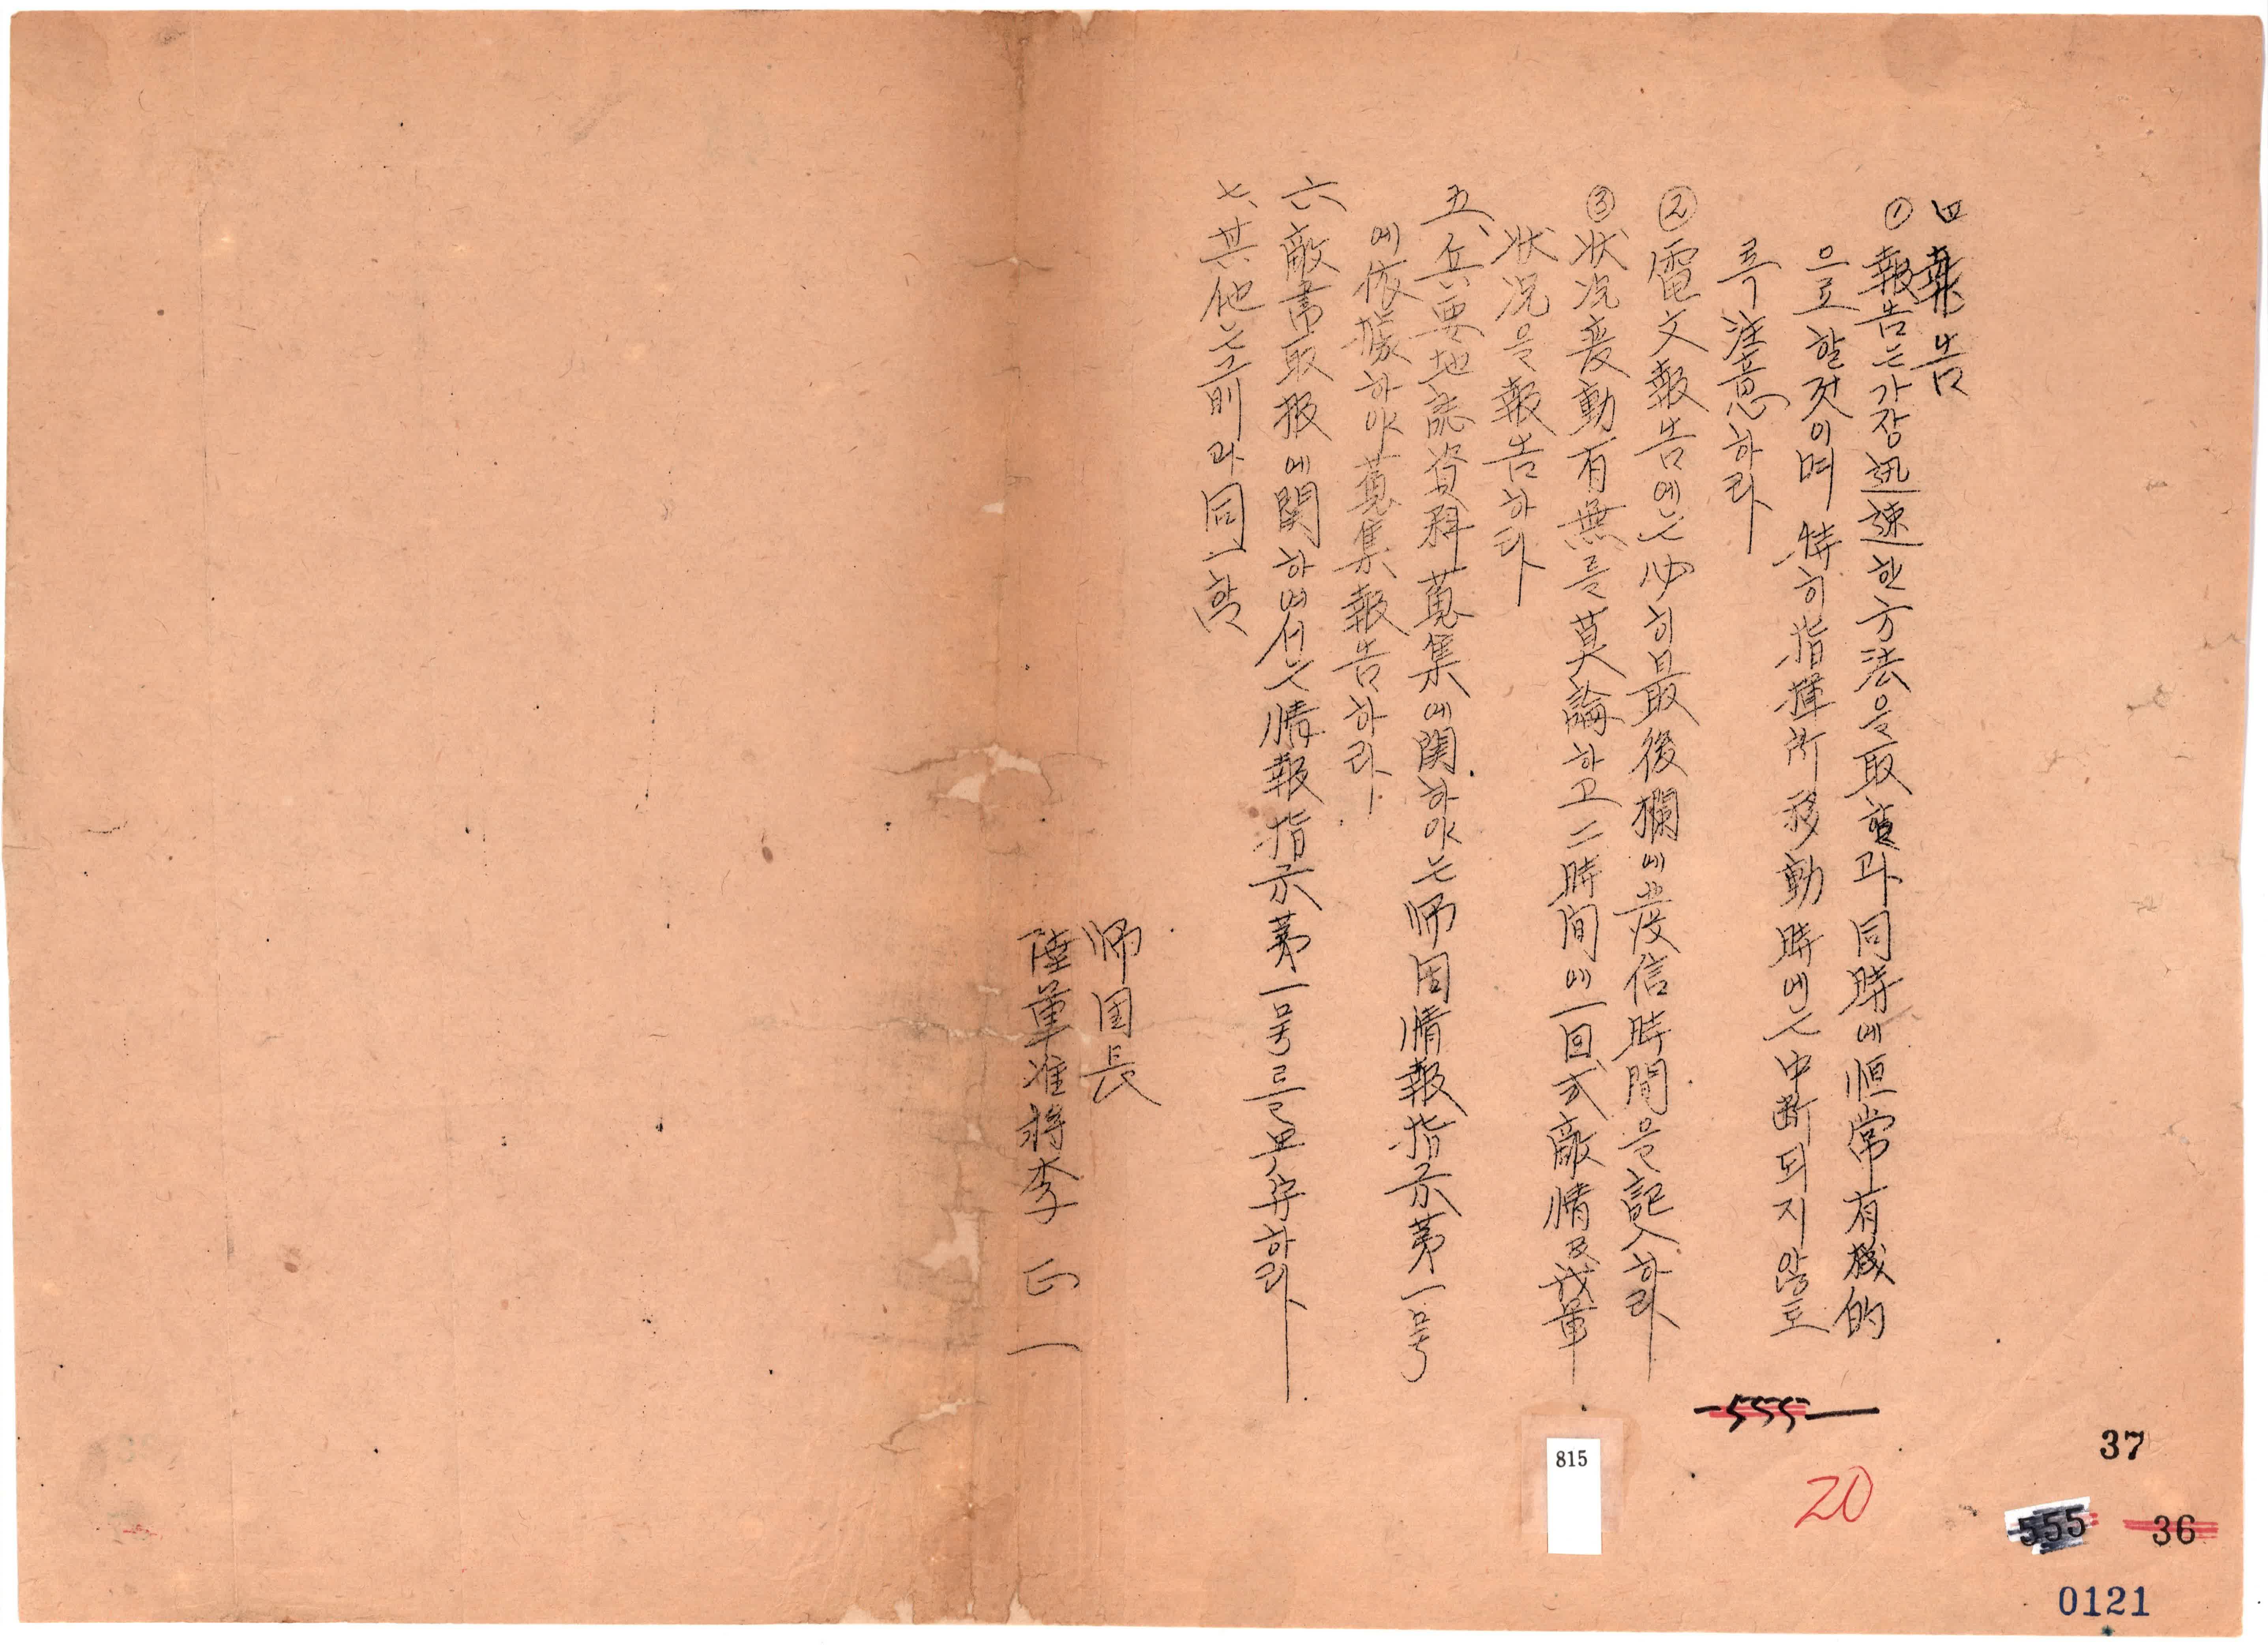 四 報告
① 報告는 가장 迅速한 方法을 取함과 同時에 恒常 有機的
으로 할것이며 特히 指揮所 移動時에는 中斷되지 않도
록 注意하라
② 電文報告에는 必히 最後欄에 發信時間을 記入하라
③ 狀況変動有無를 莫論하고 二時間에 一回式 敵情及我軍
狀况을 報告하라
五、兵要地誌資料蒐集에 関하야는 师団情報指示第一号
에 依據하야 蒐集報告하라
六 敵書取扱에 関하여서는 情報指示第一号를 하라
七、其他는 前과 同一함
师団長
陸軍准將 李正一
555
815
20
37
555
36
0121